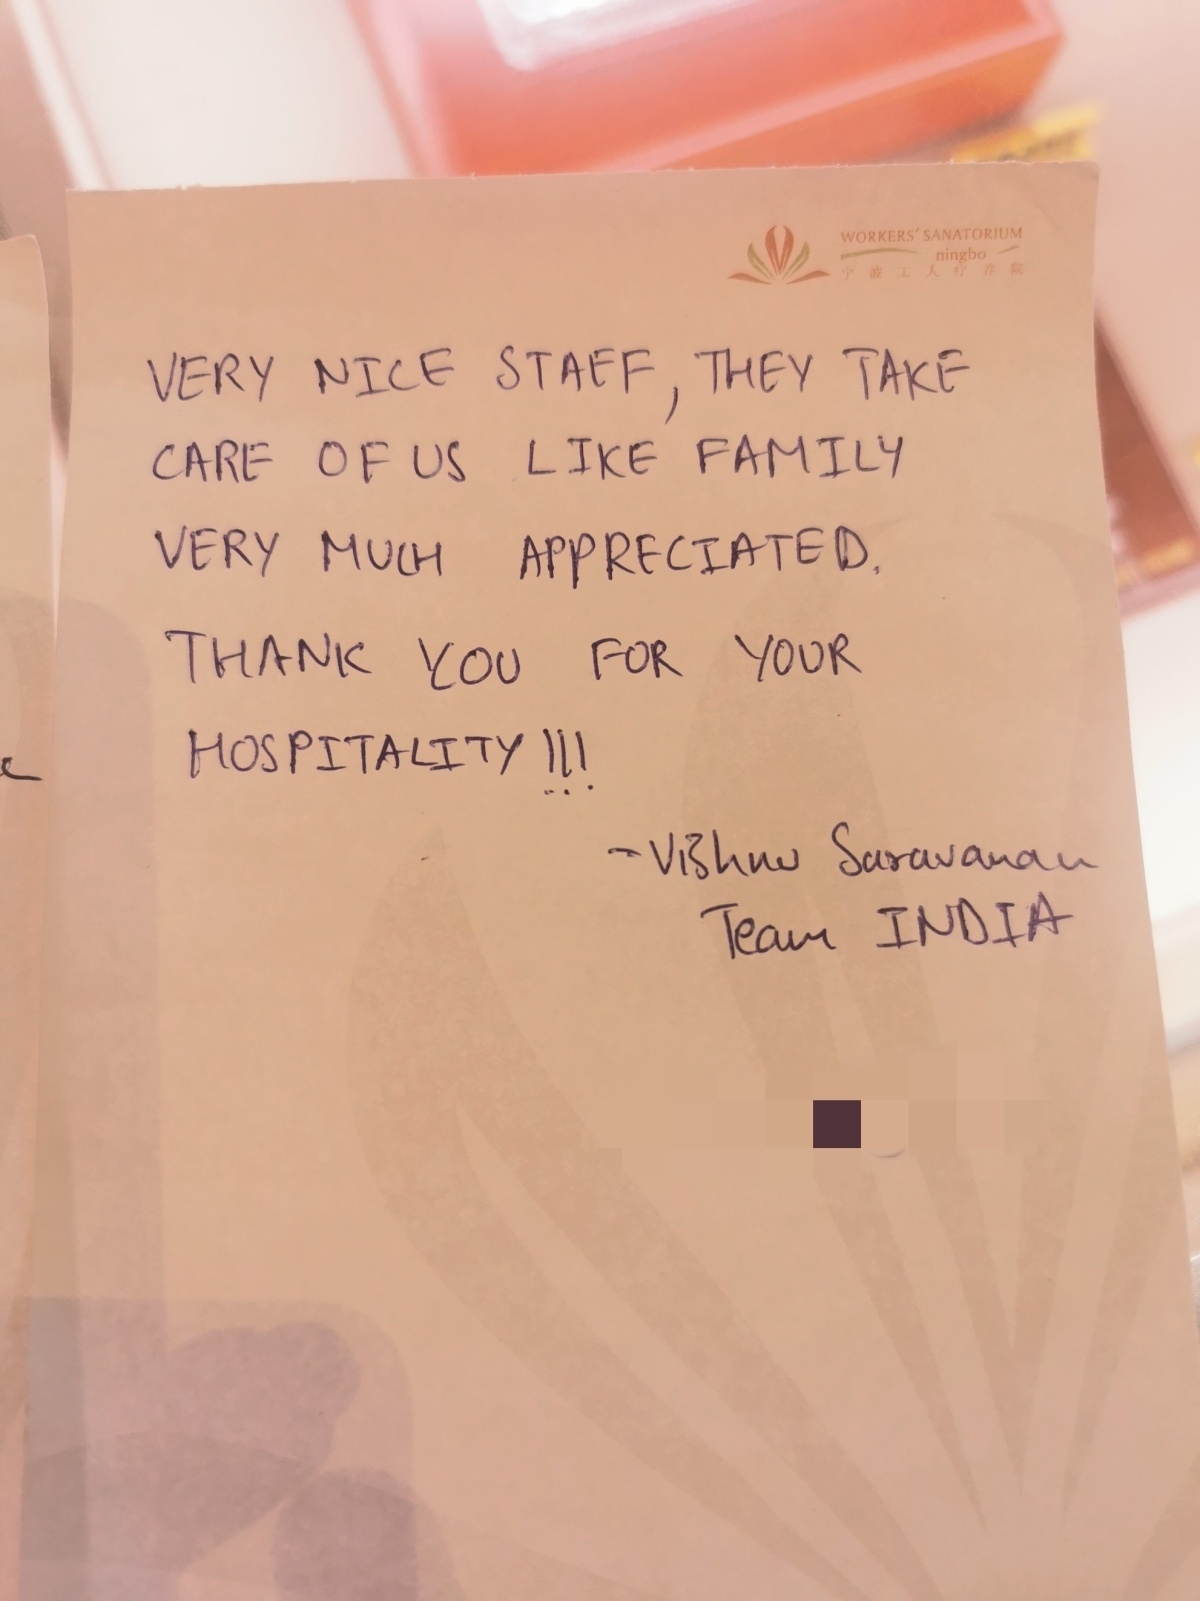 WORKERS' SANATORIUM
ningbo
宁波工人疗养院
VERY NICE STAFF, THEY TAKE
CARE OF US LIKE FAMILY
VERY MUCH APPRECIATED.
THANK YOU FOR YOUR
HOSPITALITY!!!
- Vishnu Saravanan
Team INDIA